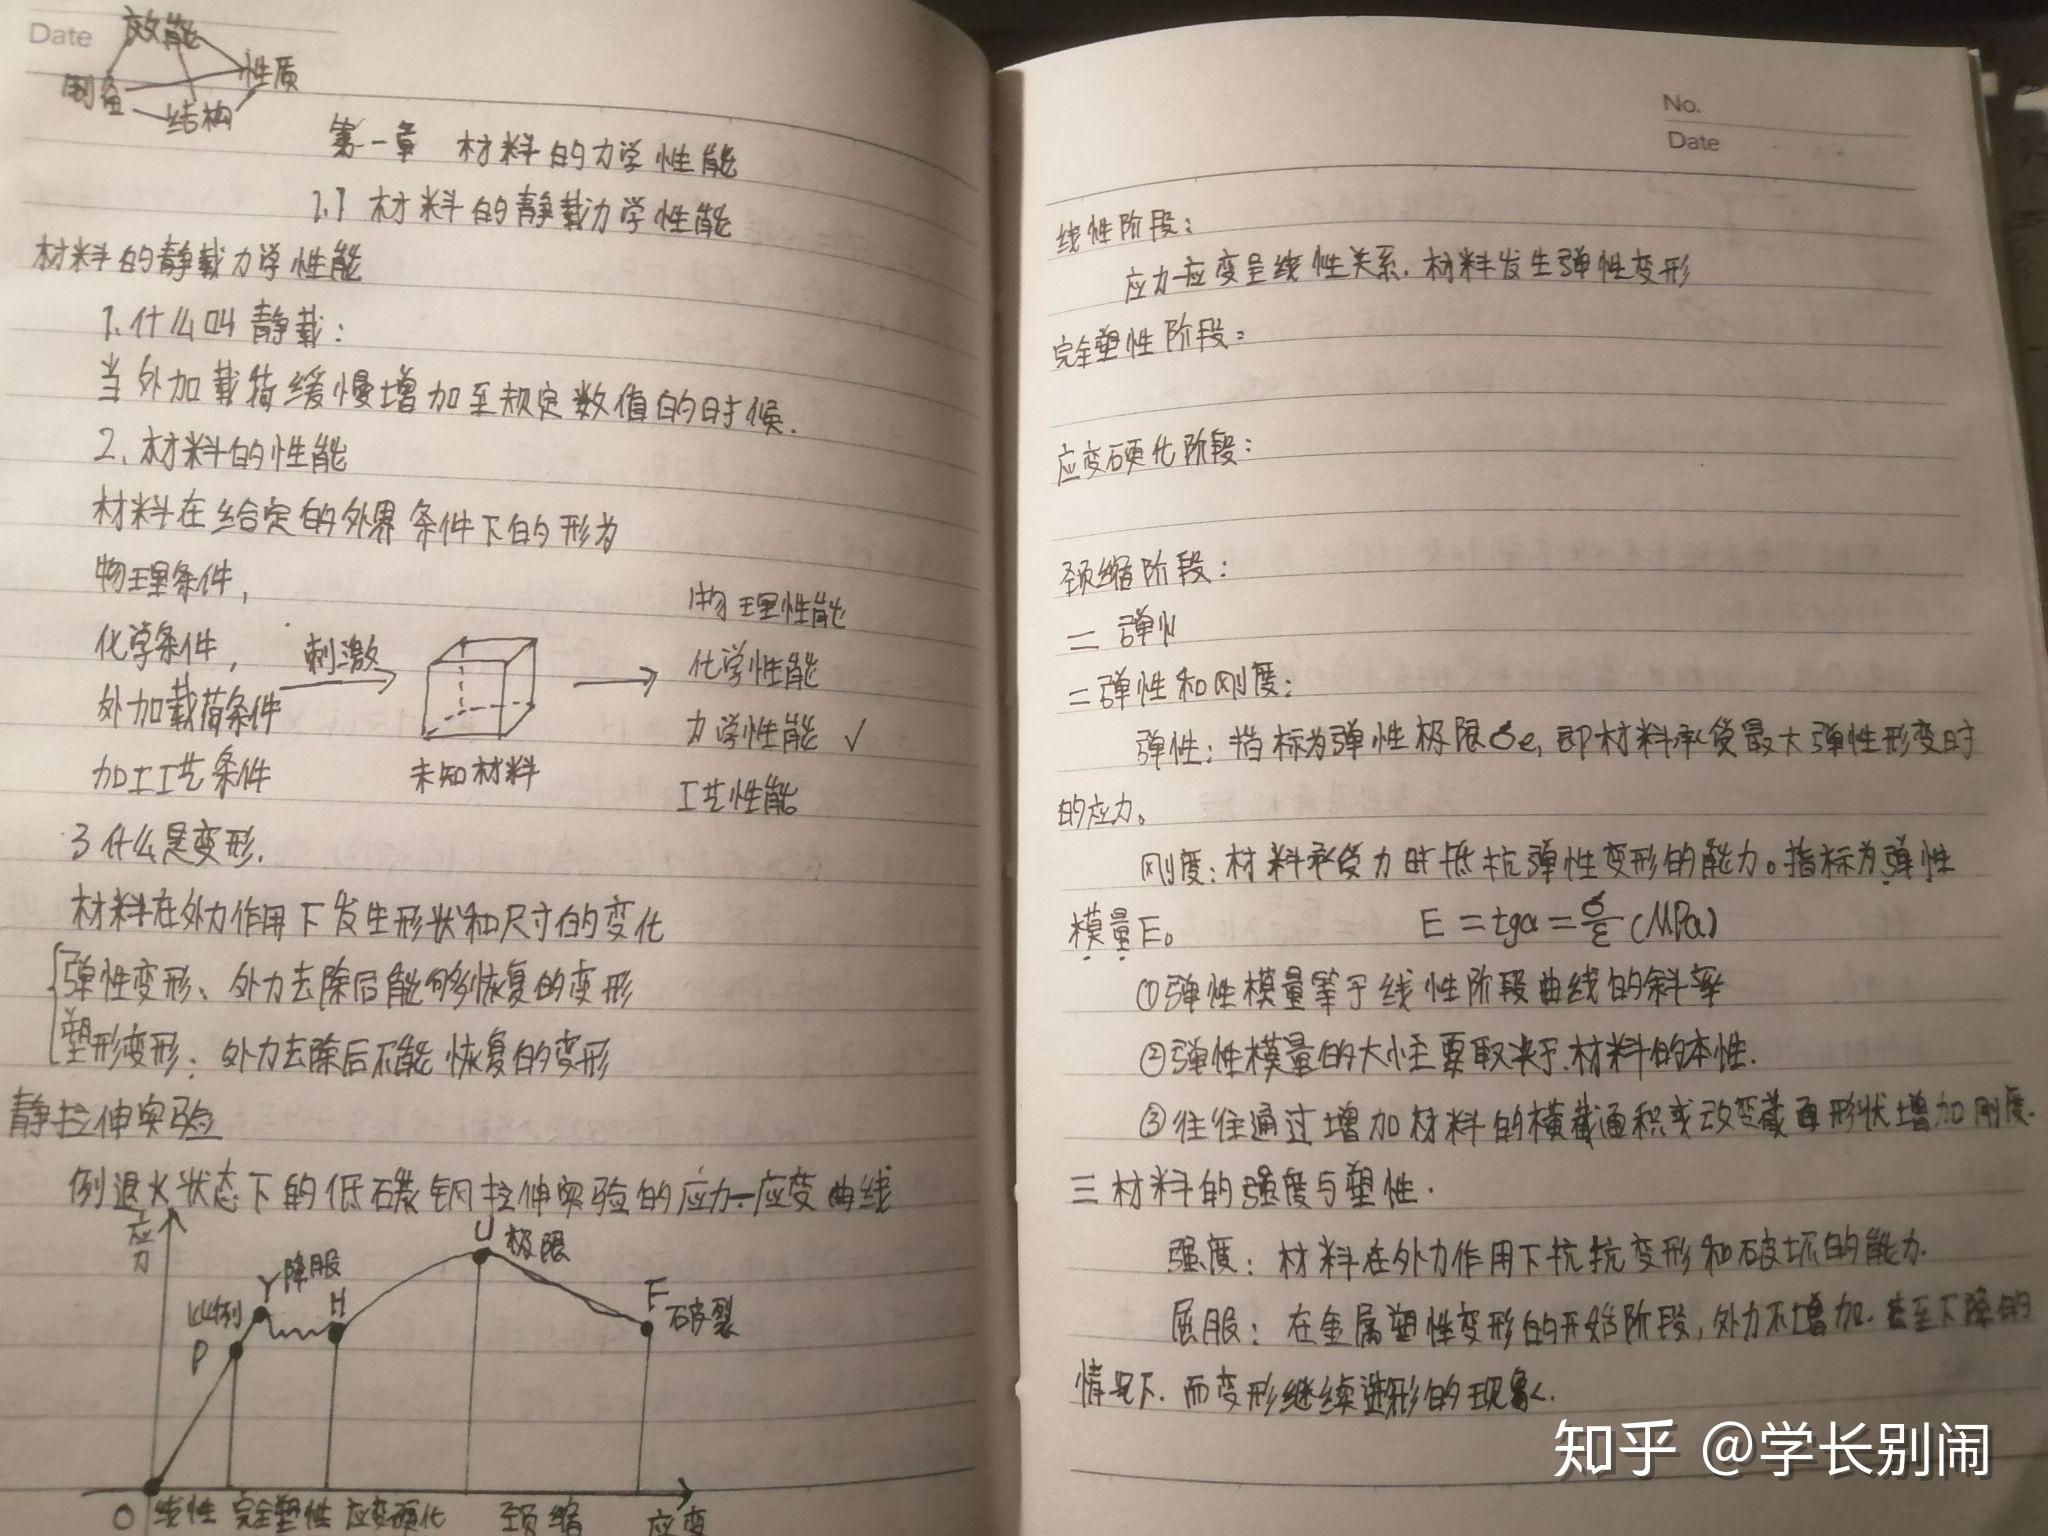 Date
效能
性质
制备
结构
第一章 材料的力学性能
1.1 材料的静载力学性能
材料的静载力学性能
1.什么叫静载:
当外加载荷缓慢增加至规定数值的时候.
2.材料的性能
材料在给定的外界条件下的形为
物理条件,
化学条件,
外加载荷条件
加工工艺条件
刺激
未知材料
物理性能
化学性能
力学性能 ✓
工艺性能
3 什么是变形.
材料在外力作用下发生形状和尺寸的变化
弹性变形、外力去除后能够恢复的变形
塑形变形:外力去除后不能恢复的变形
静拉伸实验
例退火状态下的低碳钢拉伸实验的应力—应变曲线
应力
U
极限
Y 降服
H
F
破裂
比例
P
O 线性 完全塑性 应变硬化 颈缩 应变
No.
Date
线性阶段:
应力—应变呈线性关系.材料发生弹性变形
完全塑性阶段:
应变硬化阶段:
颈缩阶段:
二 弹
二弹性和刚度:
弹性:指标为弹性极限σe,即材料承受最大弹性形变时
的应力。
刚度:材料承受力时抵抗弹性变形的能力。指标为弹性
模量E。 E=tgα=σ/ε (MPa)
①弹性模量等于线性阶段曲线的斜率
②弹性模量的大小主要取决于材料的本性.
③往往通过增加材料的横截面积或改变截面形状增加刚度.
三材料的强度与塑性.
强度:材料在外力作用下抗抗变形和破坏的能力.
屈服:在金属塑性变形的开始阶段,外力不增加.甚至下降的
情况下.而变形继续进形的现象.
知乎 @学长别闹